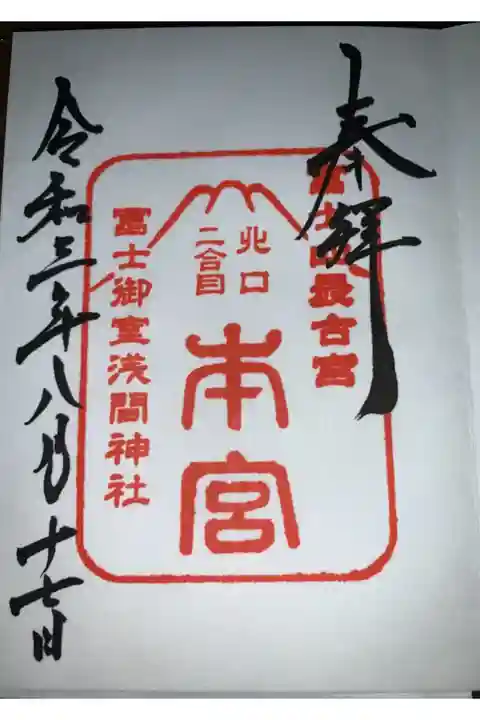 奉拝
冨士山最古宮
北口
二合目
本宮
冨士御室浅間神社
令和三年八月十七日